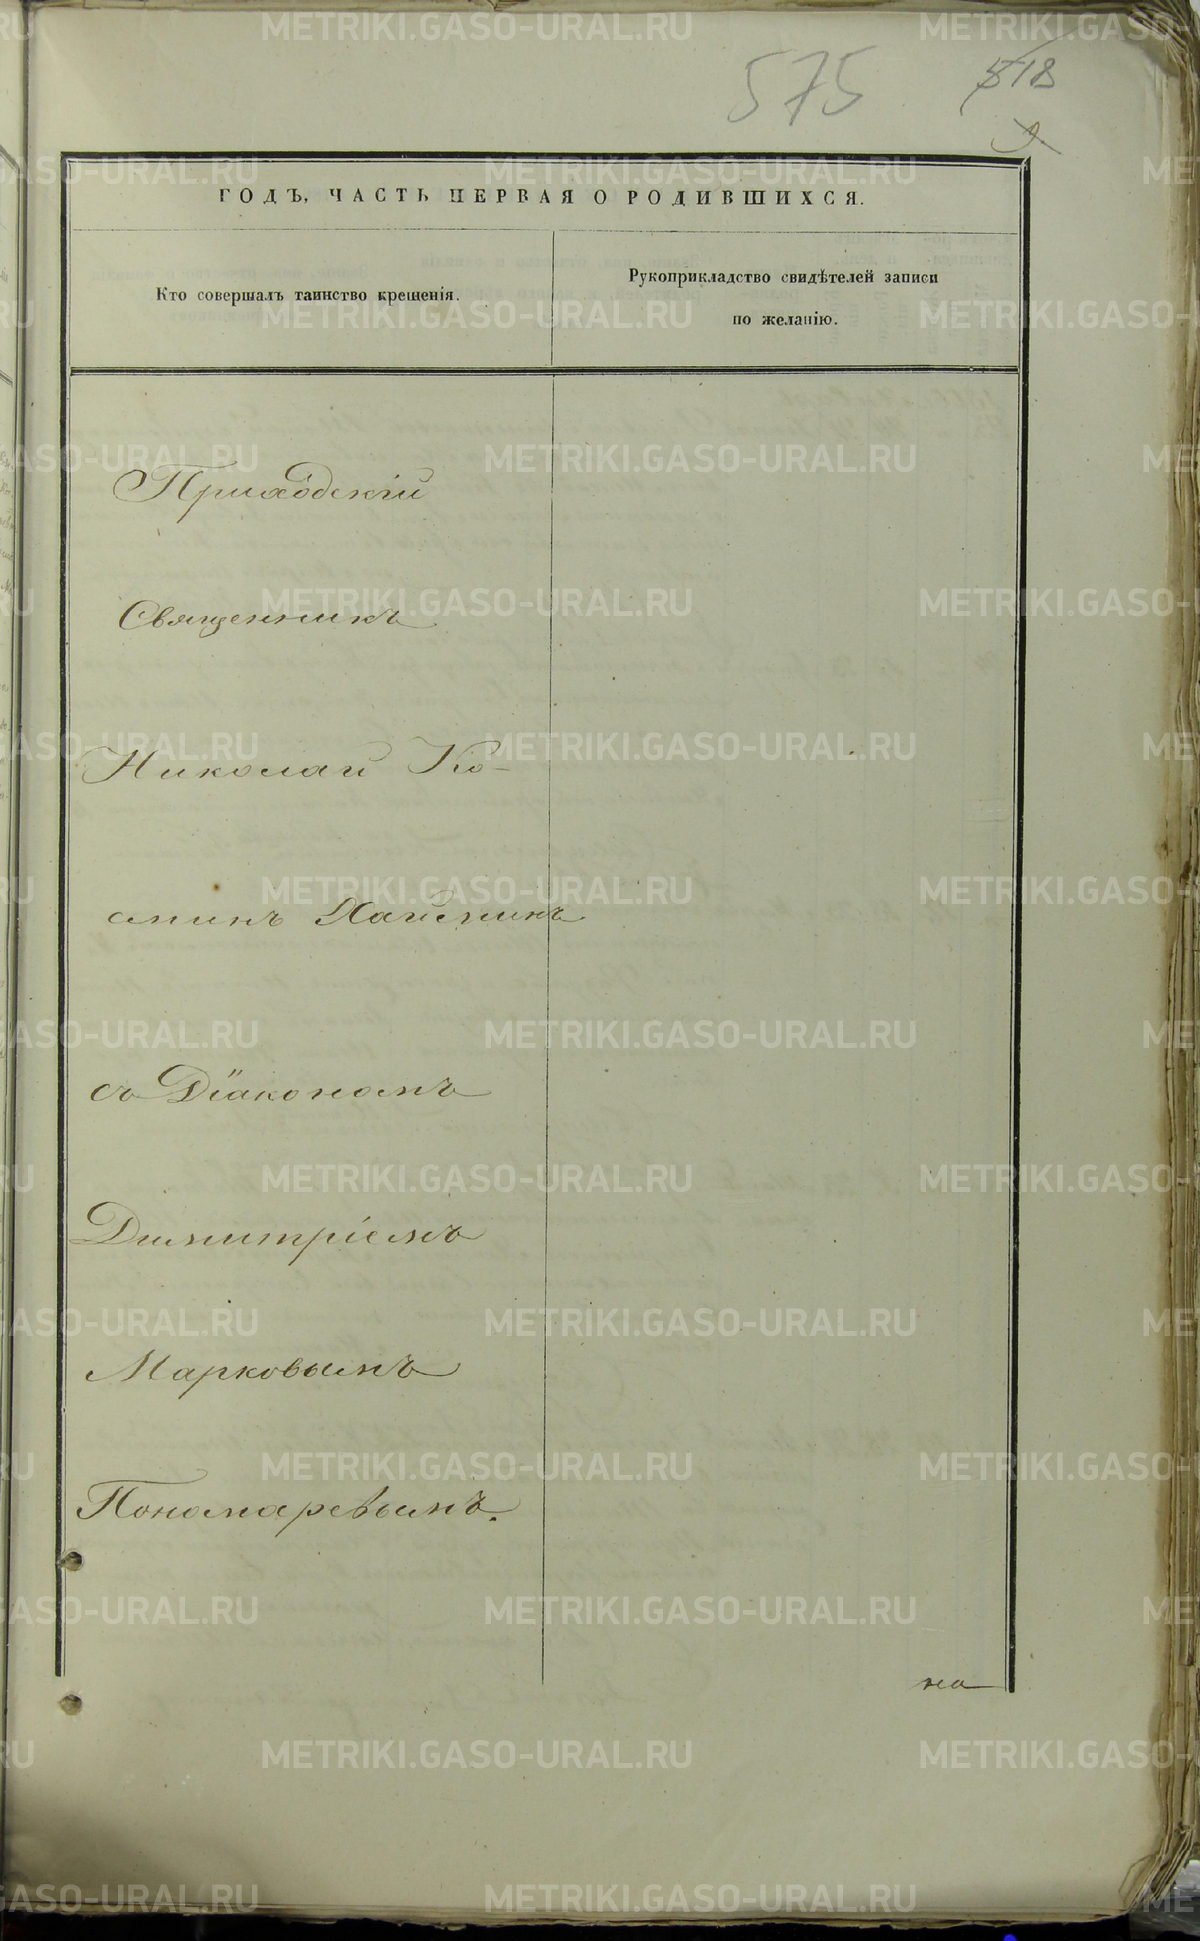 575
518
ГОДЪ, ЧАСТЬ ПЕРВАЯ О РОДИВШИХСЯ.
Кто совершалъ таинство крещенія.
Рукоприкладство свидѣтелей записи
по желанію.
Приходскій
Священникъ
Николай Ко-
съ Діакономъ
Димитріемъ
Марковымъ
Пономаревымъ.
на
METRIKI.GASO-URAL.RU